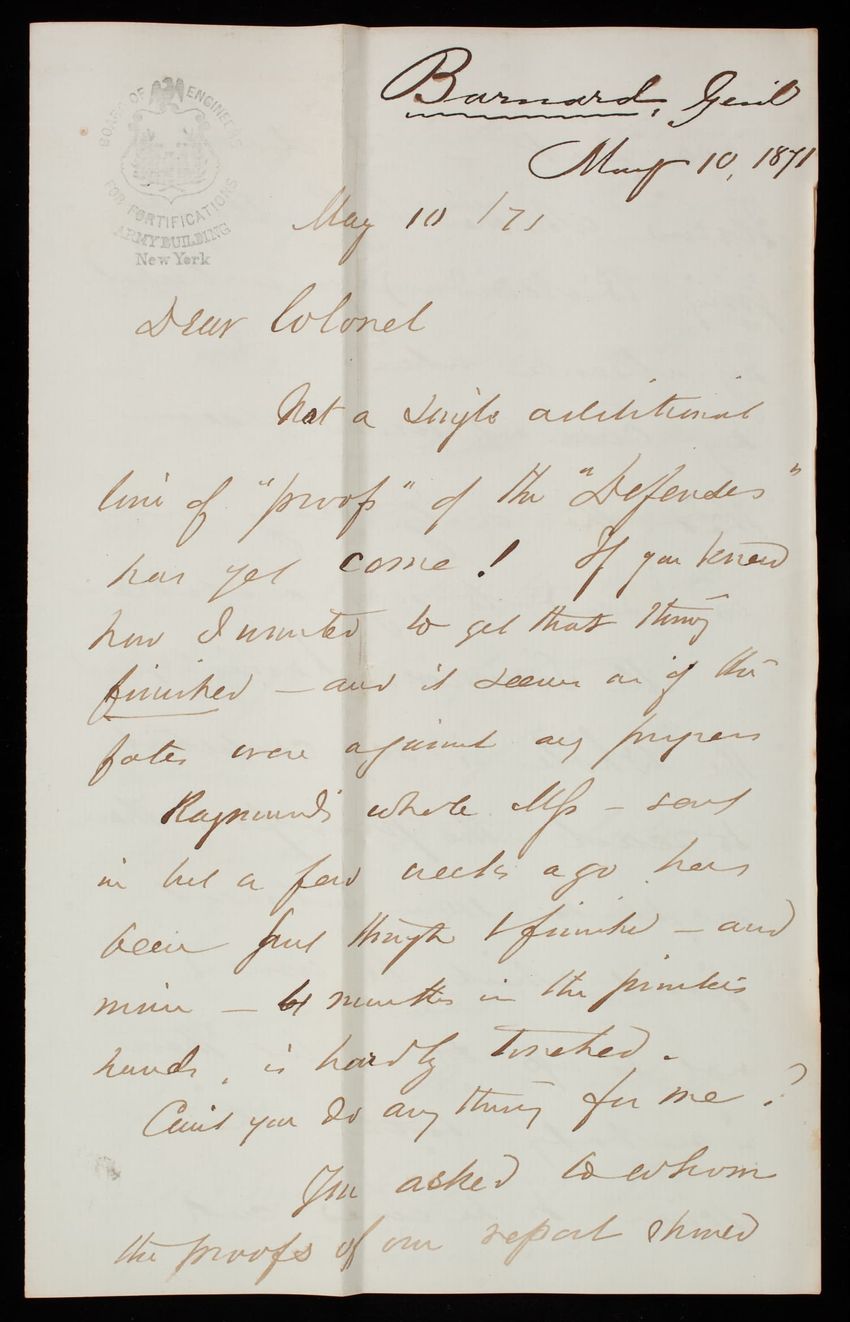 BOARD OF ENGINEERS
FOR FORTIFICATIONS
ARMY BUILDING
New York
Barnard, Genl
May 10, 1871
May 10 /71
Dear Colonel
Not a single additional
line of "proof" of the "Defenses"
has yet come! If you knew
how I wanted to get that thing
finished – and it seems as if the
fates were against any progress
Raymond's whole MSS – sent
in but a few weeks ago has
been put through & finished – and
mine – 4 months in the printer's
hands, is hardly touched.
Can't you do any thing for me?
You asked to whom
the proofs of our report should